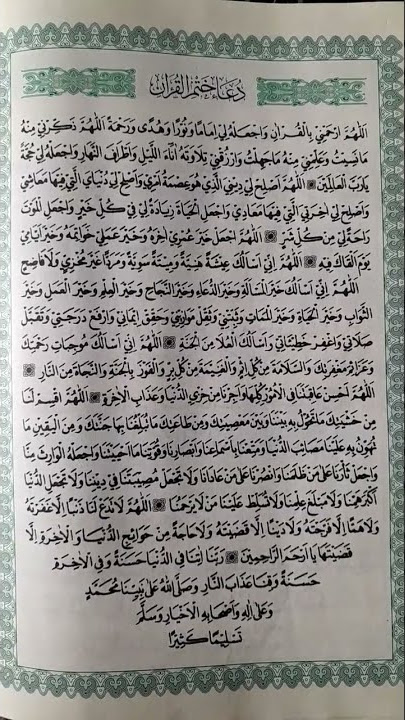 دُعَاءُ خَتْمِ الْقُرْآنِ
اَللّٰهُمَّ ارْحَمْنِيْ بِالْقُرْاٰنِ وَاجْعَلْهُ لِيْ اِمَامًا وَنُوْرًا وَهُدًى وَرَحْمَةً اَللّٰهُمَّ ذَكِّرْنِيْ مِنْهُ
مَا نَسِيْتُ وَعَلِّمْنِيْ مِنْهُ مَا جَهِلْتُ وَارْزُقْنِيْ تِلَاوَتَهُ اٰنَاءَ اللَّيْلِ وَاَطْرَافَ النَّهَارِ وَاجْعَلْهُ لِيْ حُجَّةً
يَا رَبَّ الْعَالَمِيْنَ اَللّٰهُمَّ اَصْلِحْ لِيْ دِيْنِيَ الَّذِيْ هُوَ عِصْمَةُ اَمْرِيْ وَاَصْلِحْ لِيْ دُنْيَايَ الَّتِيْ فِيْهَا مَعَاشِيْ
وَاَصْلِحْ لِيْ اٰخِرَتِيَ الَّتِيْ فِيْهَا مَعَادِيْ وَاجْعَلِ الْحَيَاةَ زِيَادَةً لِيْ فِيْ كُلِّ خَيْرٍ وَاجْعَلِ الْمَوْتَ
رَاحَةً لِيْ مِنْ كُلِّ شَرٍّ اَللّٰهُمَّ اجْعَلْ خَيْرَ عُمْرِيْ اٰخِرَهُ وَخَيْرَ عَمَلِيْ خَوَاتِمَهُ وَخَيْرَ اَيَّامِيْ
يَوْمَ اَلْقَاكَ فِيْهِ اَللّٰهُمَّ اِنِّيْ اَسْاَلُكَ عِيْشَةً هَنِيَّةً وَمِيْتَةً سَوِيَّةً وَمَرَدًّا غَيْرَ مُخْزِيْ وَلَا فَاضِحٍ
اَللّٰهُمَّ اِنِّيْ اَسْاَلُكَ خَيْرَ الْمَسْاَلَةِ وَخَيْرَ الدُّعَاءِ وَخَيْرَ النَّجَاحِ وَخَيْرَ الْعِلْمِ وَخَيْرَ الْعَمَلِ وَخَيْرَ
الثَّوَابِ وَخَيْرَ الْحَيَاةِ وَخَيْرَ الْمَمَاتِ وَثَبِّتْنِيْ وَثَقِّلْ مَوَازِيْنِيْ وَحَقِّقْ اِيْمَانِيْ وَارْفَعْ دَرَجَتِيْ وَتَقَبَّلْ
صَلَاتِيْ وَاغْفِرْ خَطِيْئَاتِيْ وَاَسْاَلُكَ الْعُلَا مِنَ الْجَنَّةِ اَللّٰهُمَّ اِنِّيْ اَسْاَلُكَ مُوْجِبَاتِ رَحْمَتِكَ
وَعَزَائِمَ مَغْفِرَتِكَ وَالسَّلَامَةَ مِنْ كُلِّ اِثْمٍ وَالْغَنِيْمَةَ مِنْ كُلِّ بِرٍّ وَالْفَوْزَ بِالْجَنَّةِ وَالنَّجَاةَ مِنَ النَّارِ
اَللّٰهُمَّ اَحْسِنْ عَاقِبَتَنَا فِي الْاُمُوْرِ كُلِّهَا وَاَجِرْنَا مِنْ خِزْيِ الدُّنْيَا وَعَذَابِ الْاٰخِرَةِ اَللّٰهُمَّ اقْسِمْ لَنَا
مِنْ خَشْيَتِكَ مَا تَحُوْلُ بِهِ بَيْنَنَا وَبَيْنَ مَعْصِيَتِكَ وَمِنْ طَاعَتِكَ مَا تُبَلِّغُنَا بِهَا جَنَّتَكَ وَمِنَ الْيَقِيْنِ مَا
تُهَوِّنُ بِهِ عَلَيْنَا مَصَائِبَ الدُّنْيَا وَمَتِّعْنَا بِاَسْمَاعِنَا وَاَبْصَارِنَا وَقُوَّتِنَا مَا اَحْيَيْتَنَا وَاجْعَلْهُ الْوَارِثَ مِنَّا
وَاجْعَلْ ثَأْرَنَا عَلٰى مَنْ ظَلَمَنَا وَانْصُرْنَا عَلٰى مَنْ عَادَانَا وَلَا تَجْعَلْ مُصِيْبَتَنَا فِيْ دِيْنِنَا وَلَا تَجْعَلِ الدُّنْيَا
اَكْبَرَ هَمِّنَا وَلَا مَبْلَغَ عِلْمِنَا وَلَا تُسَلِّطْ عَلَيْنَا مَنْ لَا يَرْحَمُنَا اَللّٰهُمَّ لَا تَدَعْ لَنَا ذَنْبًا اِلَّا غَفَرْتَهُ
وَلَا هَمًّا اِلَّا فَرَّجْتَهُ وَلَا دَيْنًا اِلَّا قَضَيْتَهُ وَلَا حَاجَةً مِنْ حَوَائِجِ الدُّنْيَا وَالْاٰخِرَةِ اِلَّا
قَضَيْتَهَا يَا اَرْحَمَ الرَّاحِمِيْنَ رَبَّنَا اٰتِنَا فِي الدُّنْيَا حَسَنَةً وَفِي الْاٰخِرَةِ
حَسَنَةً وَقِنَا عَذَابَ النَّارِ وَصَلَّى اللهُ عَلٰى نَبِيِّنَا مُحَمَّدٍ
وَعَلٰى اٰلِهِ وَاَصْحَابِهِ الْاَخْيَارِ وَسَلَّمَ
تَسْلِيْمًا كَثِيْرًا